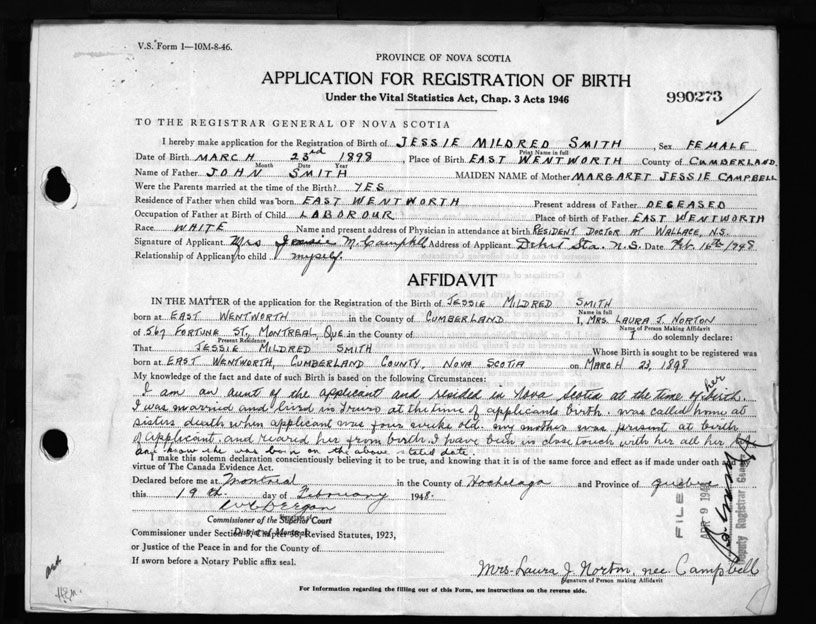 V.S. Form 1—10M-8-46.
PROVINCE OF NOVA SCOTIA
APPLICATION FOR REGISTRATION OF BIRTH
Under the Vital Statistics Act, Chap. 3 Acts 1946
990273
TO THE REGISTRAR GENERAL OF NOVA SCOTIA
I hereby make application for the Registration of Birth of JESSIE MILDRED SMITH, Sex FEMALE
Print Name in full
Date of Birth MARCH 23rd 1898, Place of Birth EAST WENTWORTH County of CUMBERLAND
Month Date Year
Name of Father JOHN SMITH MAIDEN NAME of Mother MARGARET JESSIE CAMPBELL
Were the Parents married at the time of the Birth? YES
Residence of Father when child was born EAST WENTWORTH Present address of Father DECEASED
Occupation of Father at Birth of Child LABOROUR Place of birth of Father EAST WENTWORTH
Race WHITE Name and present address of Physician in attendance at birth RESIDENT DOCTOR AT WALLACE, N.S.
Signature of Applicant Mrs Jessie M. Campbell Address of Applicant Debert Sta. N.S. Date Feb. 16th/1948
Relationship of Applicant to child myself.
AFFIDAVIT
IN THE MATTER of the application for the Registration of the Birth of JESSIE MILDRED SMITH
Name in full
born at EAST WENTWORTH in the County of CUMBERLAND I, MRS. LAURA J. NORTON
Name of Person Making Affidavit
of 567 FORTUNE ST, MONTREAL, QUE. in the County of I do solemnly declare:
Present Residence
That JESSIE MILDRED SMITH Whose Birth is sought to be registered was
born at EAST WENTWORTH, CUMBERLAND COUNTY, NOVA SCOTIA on MARCH 23, 1898
My knowledge of the fact and date of such Birth is based on the following Circumstances:
I am an aunt of the applicant and resided in Nova Scotia at the time of her birth.
I was married and lived in Truro at the time of applicants birth. was called home at
sisters death when applicant was four weeks old. my mother was present at birth
of applicant. and reared her from birth. I have been in close touch with her all her
and know she was born on the above stated date.
I make this solemn declaration conscientiously believing it to be true, and knowing that it is of the same force and effect as if made under oath
virtue of The Canada Evidence Act.
Declared before me at Montreal in the County of Hochelaga and Province of Quebec
this 19th day of February 1948.
Commissioner of the Superior Court
District of Montreal
Commissioner under Section 9, Chapter 38, Revised Statutes, 1923,
or Justice of the Peace in and for County of
If sworn before a Notary Public affix seal.
Mrs. Laura J. Norton, nee Campbell
Signature of Person making Affidavit
For Information regarding the filling out of this Form, see instructions on the reverse side.
FILED
APR 9 194
Deputy Registrar General